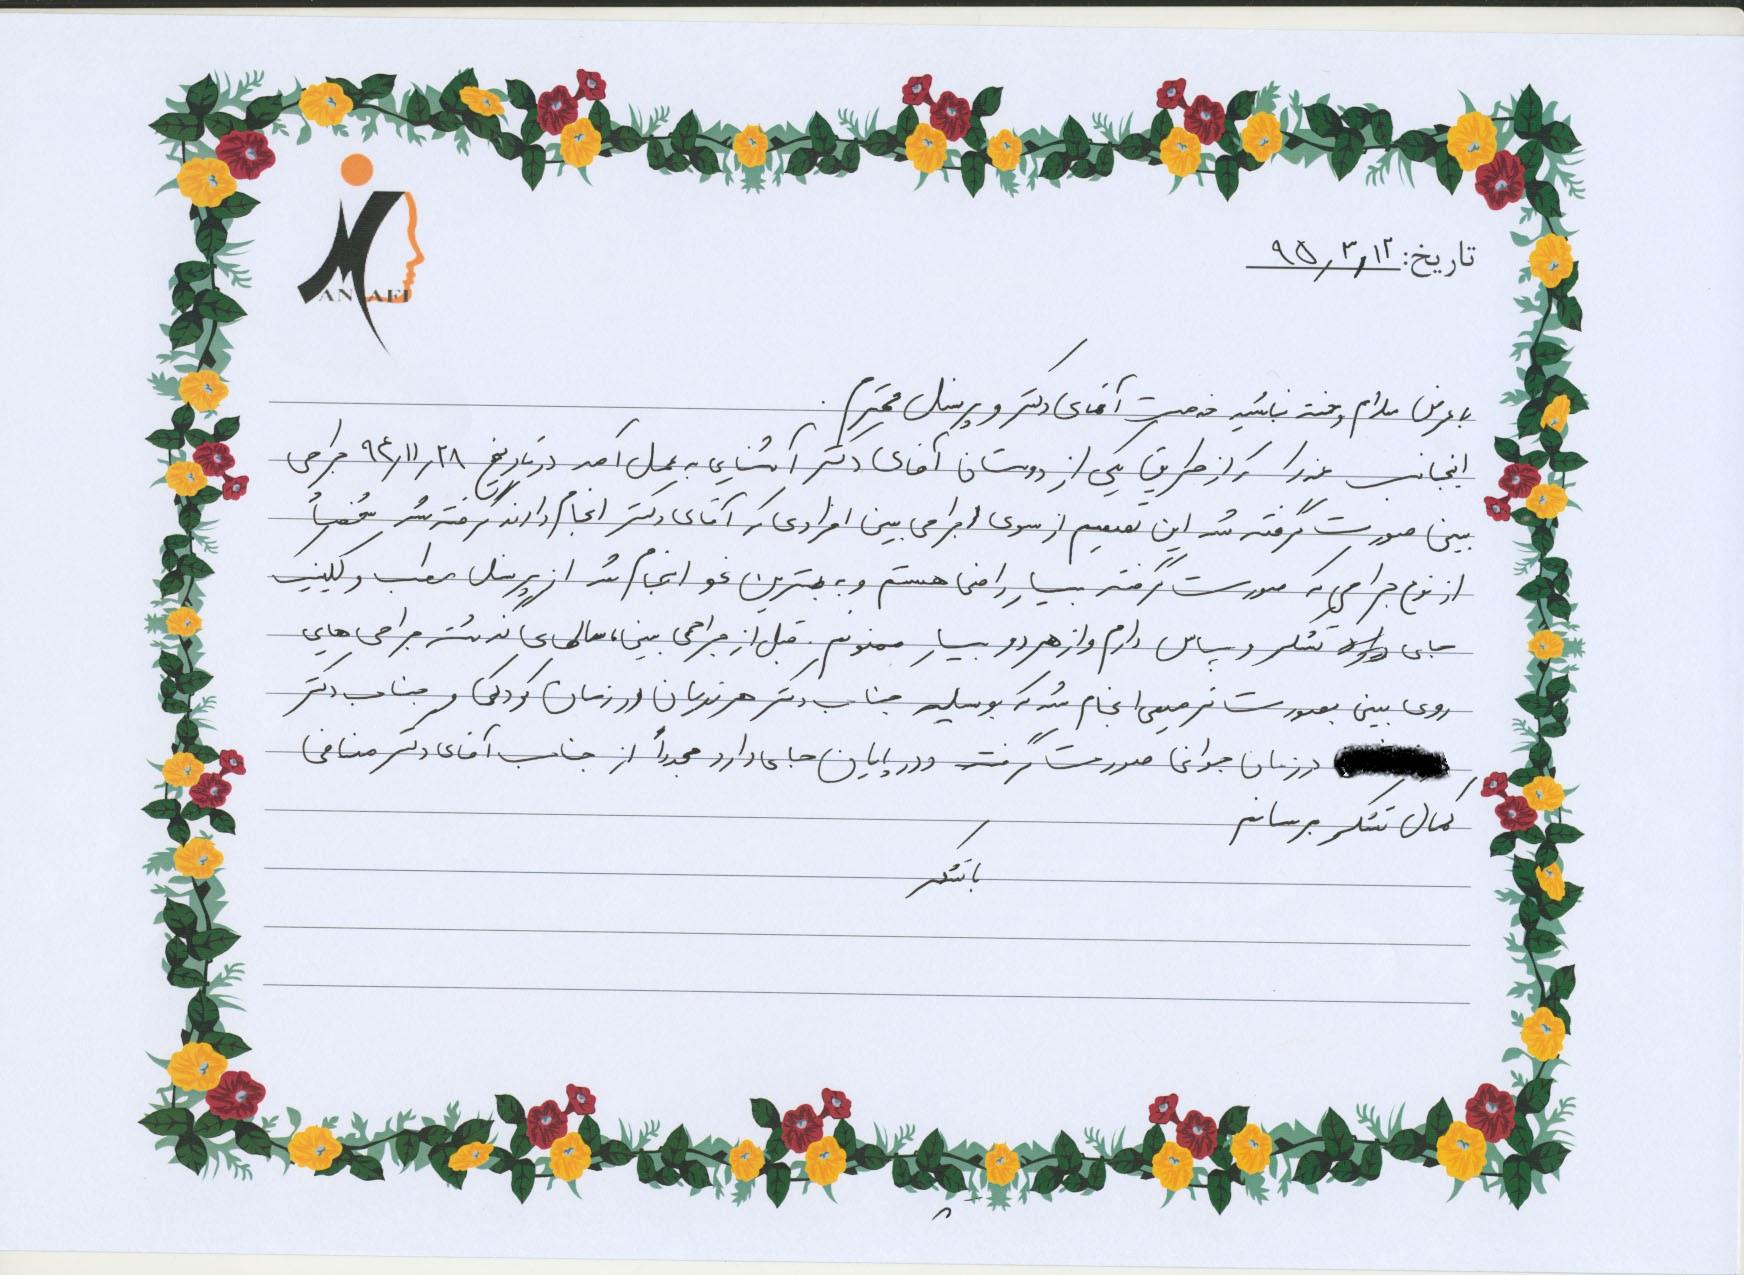 تاریخ: ۹۵,۳,۱۲
MANAFI
با عرض سلام و خسته نباشید خدمت آقای دکتر و پرسنل محترم.
اینجانب که از طریق یکی از دوستان آقای دکتر آشنایی به عمل آمد در تاریخ ۹۴,۱۱,۲۸ جراحی
بینی صورت گرفته شد این تصمیم از سوی جراحی بینی افرادی که آقای دکتر انجام دادند گرفته شد شخصاً
از نوع جراحی که صورت گرفته بسیار راضی هستم و به بهترین نحو انجام شد از پرسنل مطب و کلینیک
جای تشکر و سپاس دارم و از هر دو بسیار ممنونم. قبل از جراحی بینی، سالهای گذشته جراحی هایی
روی بینی بصورت ترمیمی انجام شد که بوسیله جناب دکتر در زمان کودکی و جناب دکتر
در زمان جوانی صورت گرفت و در پایان جای دارد مجدداً از جناب آقای دکتر منافی
کمال تشکر برسانم
با تشکر
۸